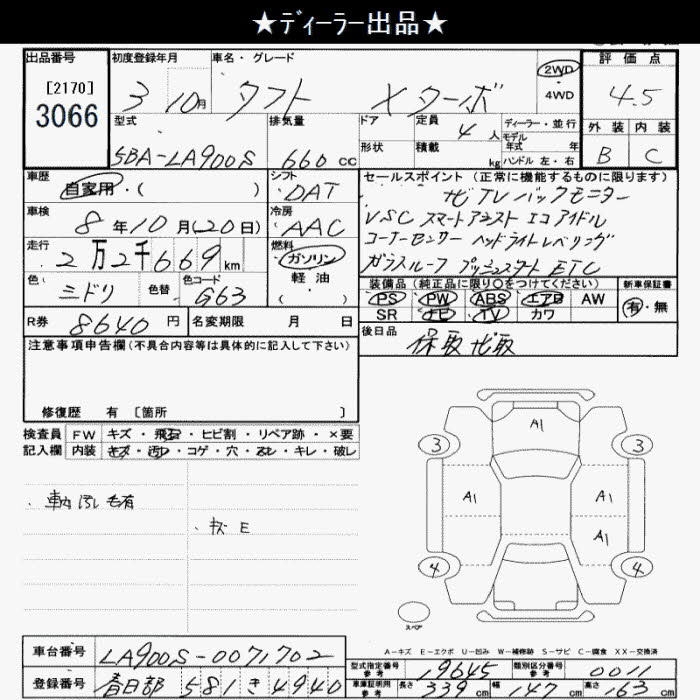 ★ディーラー出品★
出品番号
[2170]
3066
初度登録年月
3 10月
車名・グレード
タフト Xターボ
2WD
4WD
評価点
4.5
外装 内装
B C
型式
5BA-LA900S
排気量
660 cc
ドア
形状
定員
4 人
積載
kg
ディーラー・並行
モデル
年式 年
ハンドル 左・右
車歴
自家用・( )
シフト
DAT
車検
8年10月(20日)
冷房
AAC
走行
2万2千669km
燃料
ガソリン
軽油
( )
色
ミドリ
色替
色コード
G63
R券
8640円
名変期限 月 日
セールスポイント(正常に機能するものに限ります)
ナビTV バックモニター
VSC スマートアシスト エコアイドル
コーナーセンサー ヘッドライトレベリング
ガラスルーフ プッシュスタート ETC
装備品(純正品に限り○をつけてください)
PS PW ABS エアB AW
SR ナビ TV カワ
新車保証書
有・無
後日品
保取 ナビ取
注意事項申告欄(不具合内容等は具体的に記入して下さい)
修復歴 有 [箇所 ]
検査員
記入欄
FW キズ・飛石・ヒビ割・リペア跡・×要
内装 キズ・汚レ・コゲ・穴・スレ・キレ・破レ
・キズ E
A1
3 3
A1 A1
A1
4 4
スペア
A-キズ E-エクボ U-凹み W-補修跡 S-サビ C-腐食 XX-交換済
車台番号
LA900S-0071702
登録番号
春日部 581 き 4940
型式指定番号
参考
19645
類別区分番号
参考
0011
車庫証明用
参考
長さ 339 cm 幅 147 cm 高さ 163 cm